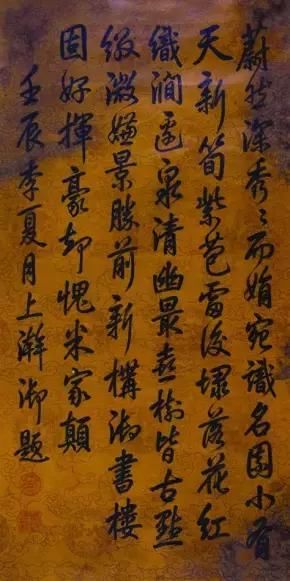 蔚然深秀々而娟宛識名園小有
天新筍紫苞雷後埭落花紅
織澗邊泉清幽最喜樹皆古點
綴微嫌景勝前新構御書樓
固好揮豪却愧米家顛
壬辰季夏月上澣御題